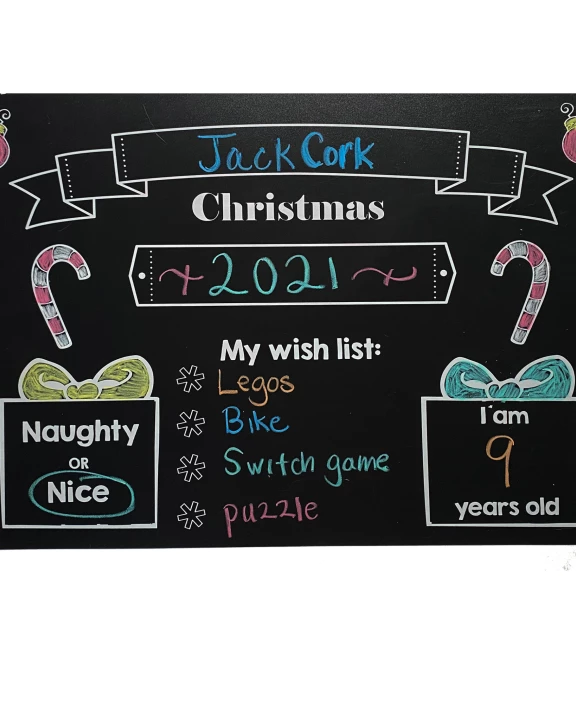 Jack Cork
Christmas
2021
My wish list:
Legos
Bike
Switch game
puzzle
Naughty
OR
Nice
I am
9
years old